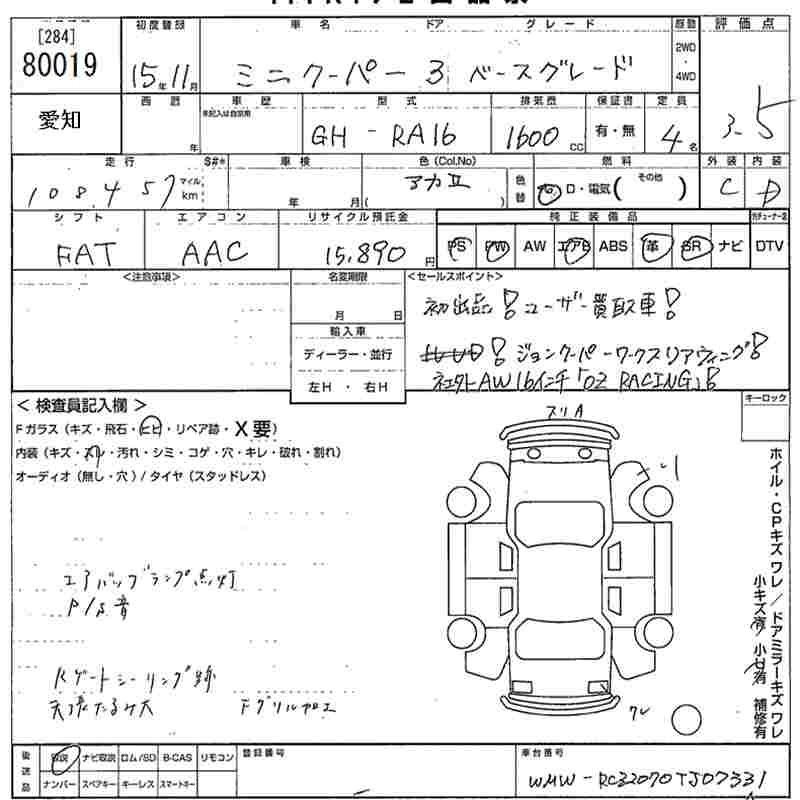 [284]
80019
愛知
初度登録
15年11月
車名 ドア グレード
ミニクーパー 3 ベースグレード
駆動
2WD
・
4WD
評価点
3.5
西暦
年
車歴
未記入は自家用
型式
GH - RA16
排気量
1600 CC
保証書
有・無
定員
4名
走行 S#*
108,457 マイル km
車検
年 月
色(Col,No)
アカⅡ
( )
色替
燃料
ロ・電気( その他 )
外装
C
内装
D
シフト
FAT
エアコン
AAC
リサイクル預託金
15,890 円
純正装備品
PS PW AW エアB ABS 革 SR ナビ DTV
<注意事項>
名変期限
月 日
輸入車
ディーラー・並行
左H ・ 右H
<セールスポイント>
初出品! ユーザー買取車!
! ジョンクーパーワークスリアウィング!
社外AW16インチ「OZ RACING」!
< 検査員記入欄 >
Fガラス(キズ・飛石・ヒビ・リペア跡・X要)
内装(キズ・スレ・汚れ・シミ・コゲ・穴・キレ・破れ・割れ)
オーディオ(無し・穴)/タイヤ(スタッドレス)
エアバッグランプ点灯
P/S音
Rゲートシーリング跡
天張たるみ大
Fグリル加工
スリA
ワレ
キーロック
ホイル・CPキズ ワレ/ドアミラーキズ ワレ
小キズ有 小凹有 補修有
後送品
取説 ナビ取説 ロム/SD B-CAS リモコン
ナンバー スペアキー キーレス スマートキー
登録番号
車台番号
WMW-RC32070TJ07331